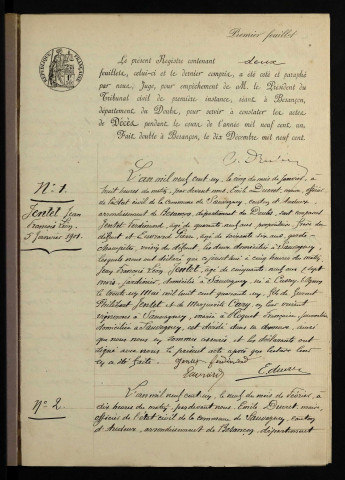 Premier feuillet
RÉPUBLIQUE FRANÇAISE
Le présent Registre contenant deux
feuillets, celui-ci et le dernier compris, a été coté et paraphé
par nous, Juge, pour empêchement de M. le Président du
Tribunal civil de première instance, séant à Besançon,
département du Doubs, pour servir à constater les actes
de Décès pendant le cours de l'année mil neuf cent un.
Fait double à Besançon, le dix Décembre mil neuf cent.
N° 1.
Jentet Jean
François Léon
5 Janvier 1901.
L'an mil neuf cent un, le cinq du mois de janvier, à
huit heures du matin, par devant nous, Emile Ducret, maire, officier
de l'état civil de la commune de Sauvagney, canton d'Audeux,
arrondissement de Besançon, département du Doubs, ont comparu
Jentet Ferdinand, âgé de quarante neuf ans, frère du
défunt et âgé de soixante six ans, garde
champêtre, voisin du défunt, les deux domiciliés à Sauvagney,
lesquels nous ont déclaré que aujourd'hui à cinq heures du matin,
Jean François Léon Jentet, âgé de cinquante neuf ans et sept
mois, jardinier, domicilié à Sauvagney, né à
le mil huit cent quarante un, fils de
Philibert Jentet et de Marguerite
à Sauvagney, marié à Françoise
domiciliée à Sauvagney, est décédé dans sa demeure, ainsi
que nous nous en sommes assurés et les déclarants ont
signé avec nous le présent acte après que lecture leur
en a été faite. Jentet Ferdinand
E Ducret
N° 2.
L'an mil neuf cent un, le neuf du mois de février, à
dix heures du matin, par devant nous Emile Ducret, maire,
officier de l'état civil de la commune de Sauvagney, canton
d'Audeux, arrondissement de Besançon, département